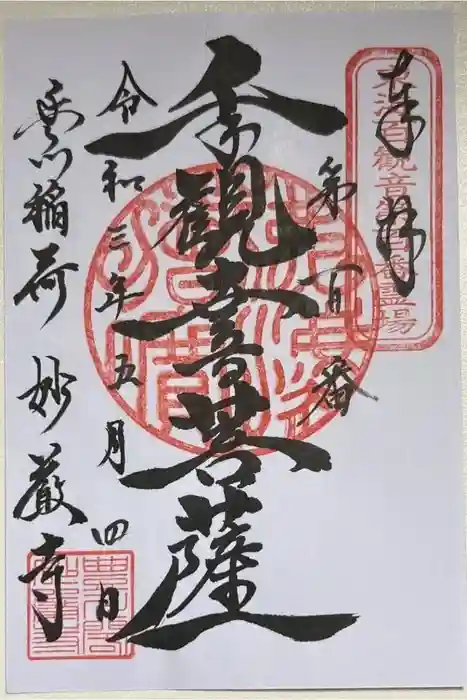 奉拝
東海百観音第百番霊場
第百番
千手観音菩薩
令和三年五月四日
豊川稲荷 妙厳寺